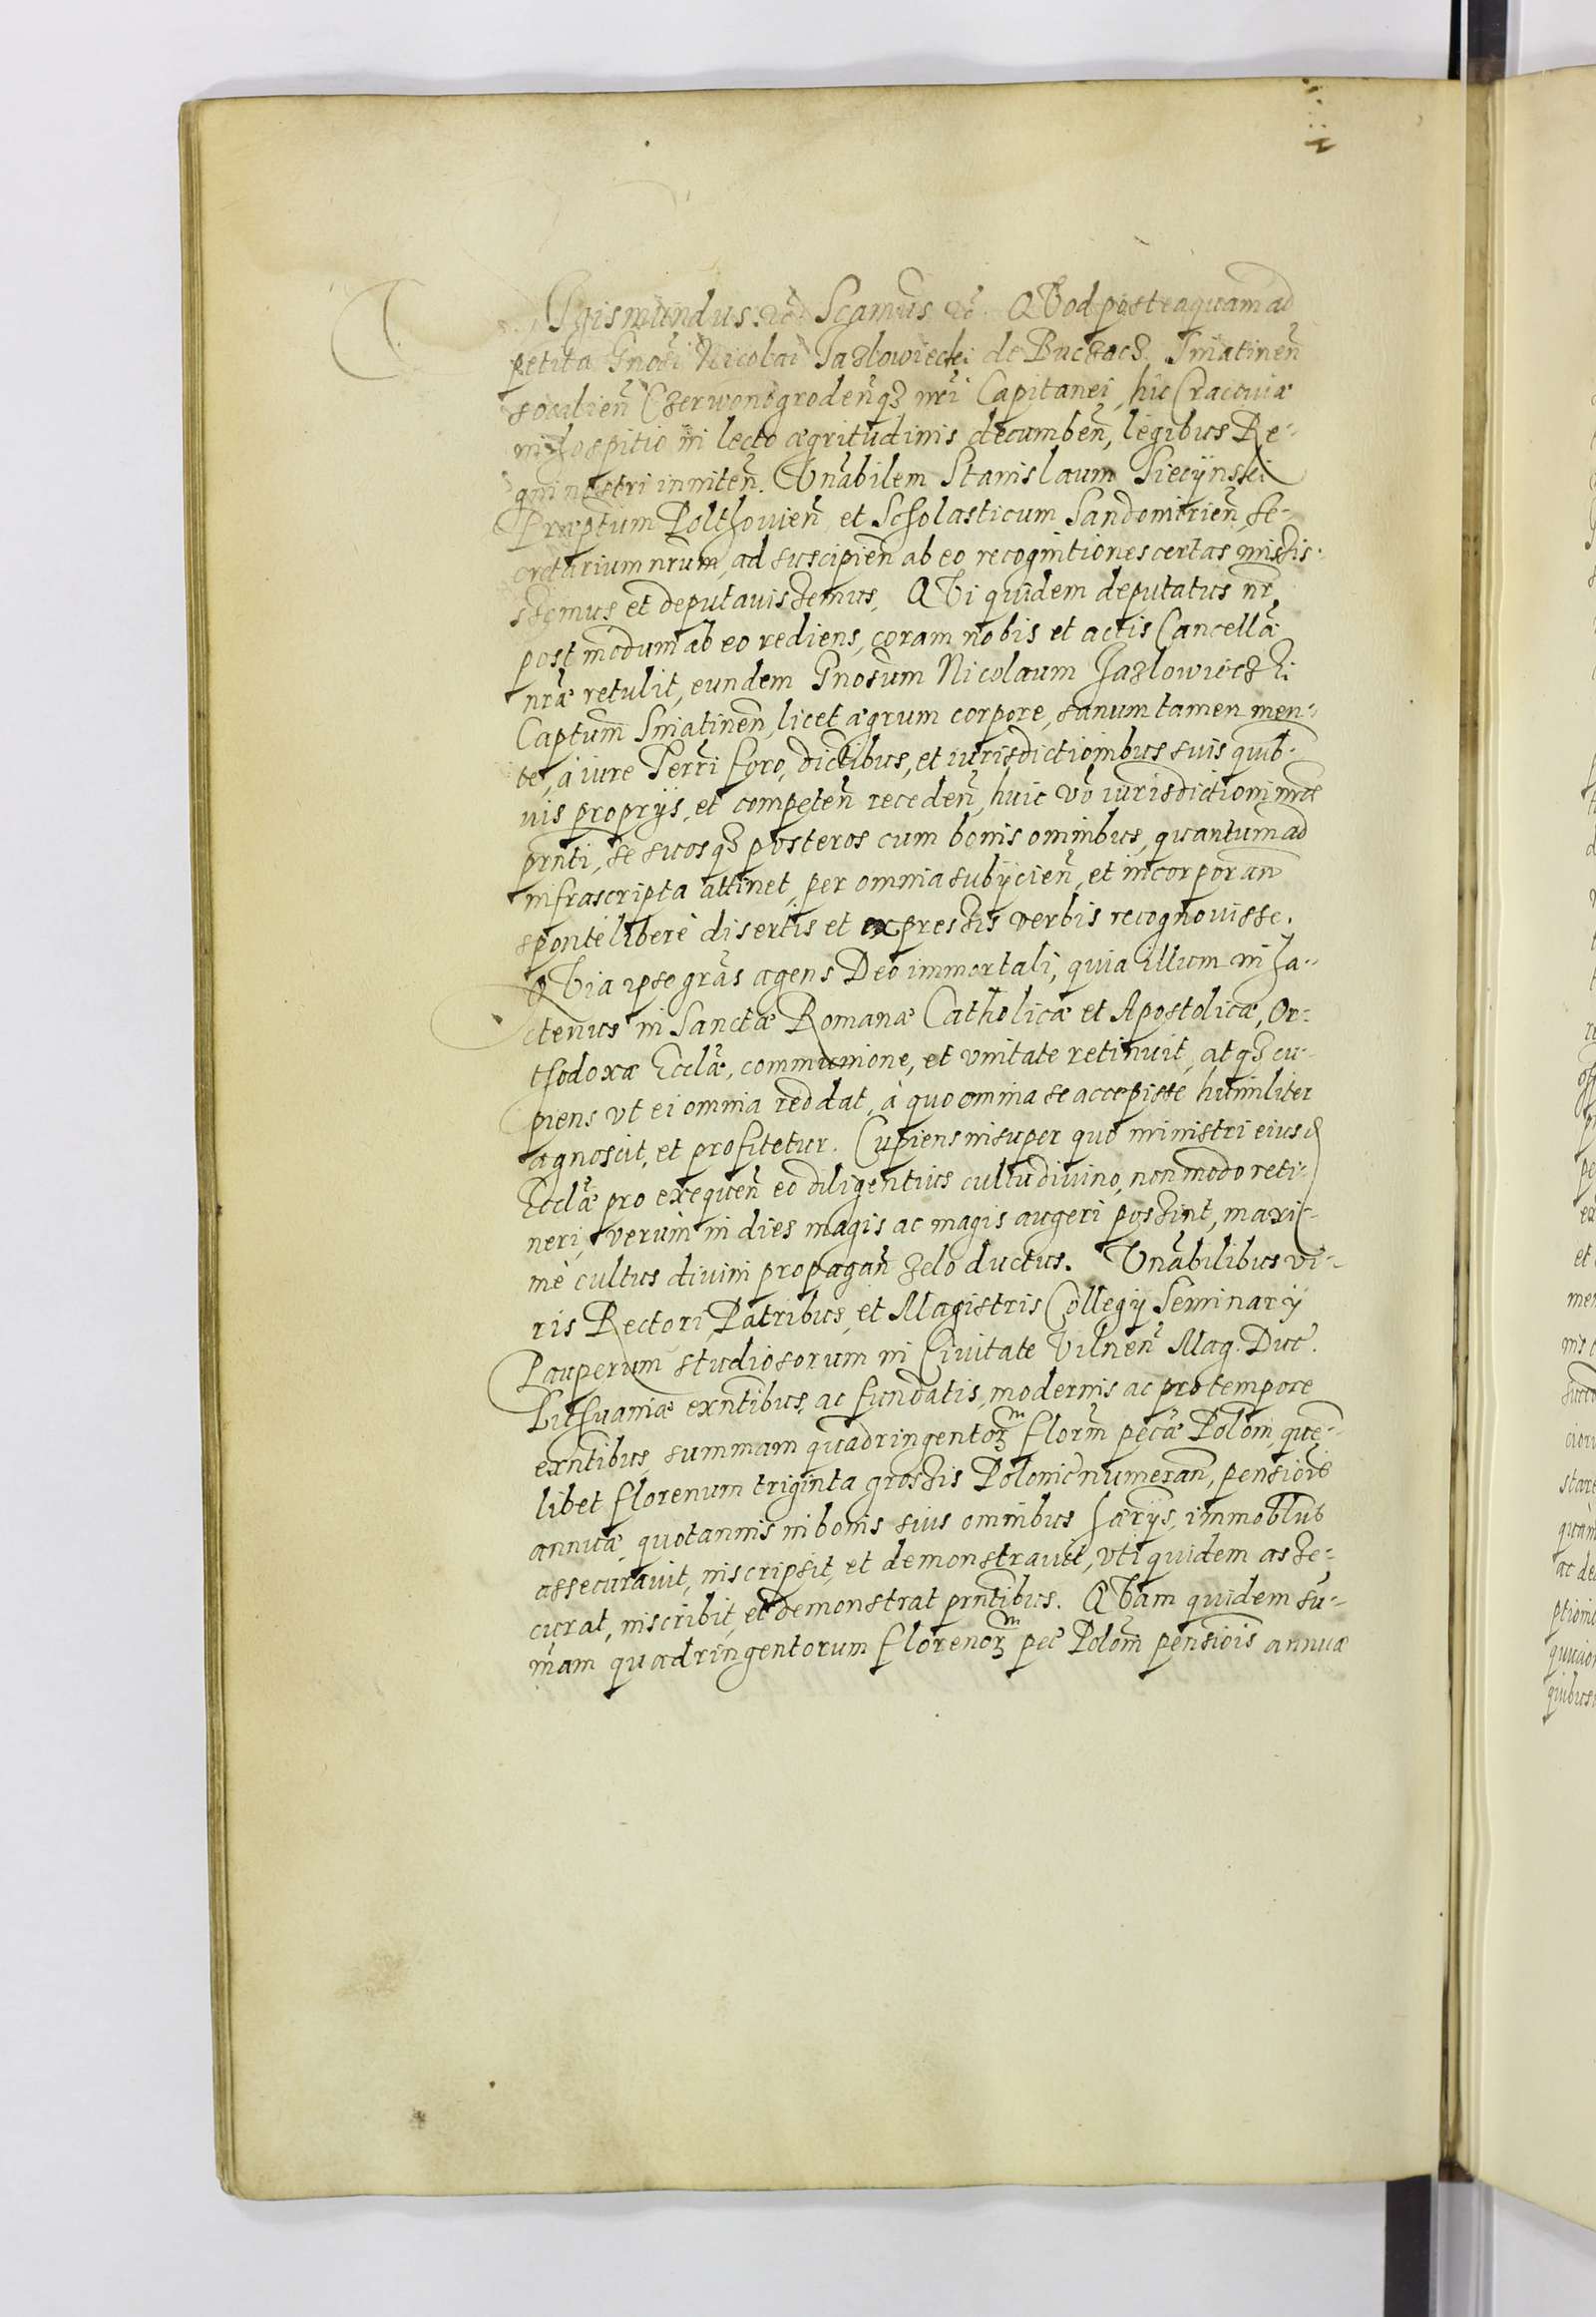 Sigismundus etc̃ Scamus etc̃. QVod posteaquam ad
petita Gnosi Nicolai Jazlowiecki de Buczacz Sniatinen̄
socalien̄ Czerwonogroden̄q3 nr̄i Capitanei, hîc Cracouiæ
in hospitio in lecto ægritudinis decumben̄, legibus Re-
gni nostri inniten̄. Vnãbilem Stanislaum
Præptum Polthouien̄ et Scholasticum Sandomirien̄, Se-
cretarium nrum, ad suscipien̄ ab eo recognitiones certas misis-
semus et deputauissemus. QVi quidem deputatus nr̄,
post modum ab eo rediens, coram nobis et actis Cancellæ
nræ retulit, eundem Gnosum Nicolaum Jazlowieczki
Captum̄ Sniatinen̄, licet ægrum corpore, sanum tamen men-
te, à iure Terri foro, dictibus, et iurisdictioinbus suis quib-
uis proprijs, et competen̄ receden̄, huic vō iurisdictioni nræ
prnti, se suosq3 posteros cum bonis omnibus, quantum ad
infrascripta attinet, per omnia subijcien̄, et incorporan̄
sponte libere disertis et expressis verbis recognouisse.
QVia ipse grãs agens Deo immortali, quia illum in ha-
ctenus in Sanctæ Romanæ Catholicæ et Apostolicæ, Or-
thodoxæ Ecclæ, communione, et vnitate retinuit, atq3 cu-
piens vt ei omnia reddat, à quo omnia se accepisse humiliter
agnoscit, et profitetur. Cupiens insuper quo ministri eiusd
Ecclæ pro exequen̄ eo diligentius cultu diuino, non modo reti-
neri, verum in dies magis ac magis augeri possint, maxi-
mè cultus diuini propagan̄ zelo ductus. Vnãbilibus vi-
ris Rectori, Patribus, et Magistris Collegij Seminarij
Pauperum studiosorum in Ciuitate Vilnen̄ Mag. Duc̃.
Lithuaniæ exntibus, ac fundatis, modernis ac pro tempore
exntibus, summam quadringentor3 florm̄ pec̃æ Polon̄, que-
libet florenum triginta grossis Polonic̃ numeran̄, pensione
annuæ quotannis in bonis suis omnibus hærijs, immoblib
assecurauit, inscripsit, et demonstrauit, vti quidem asse-
curat, inscribit, et demonstrat prntibus. QVam quidem su-
mam quadringentorum florenor3 pec̃ Polon̄ pensiois annuæ